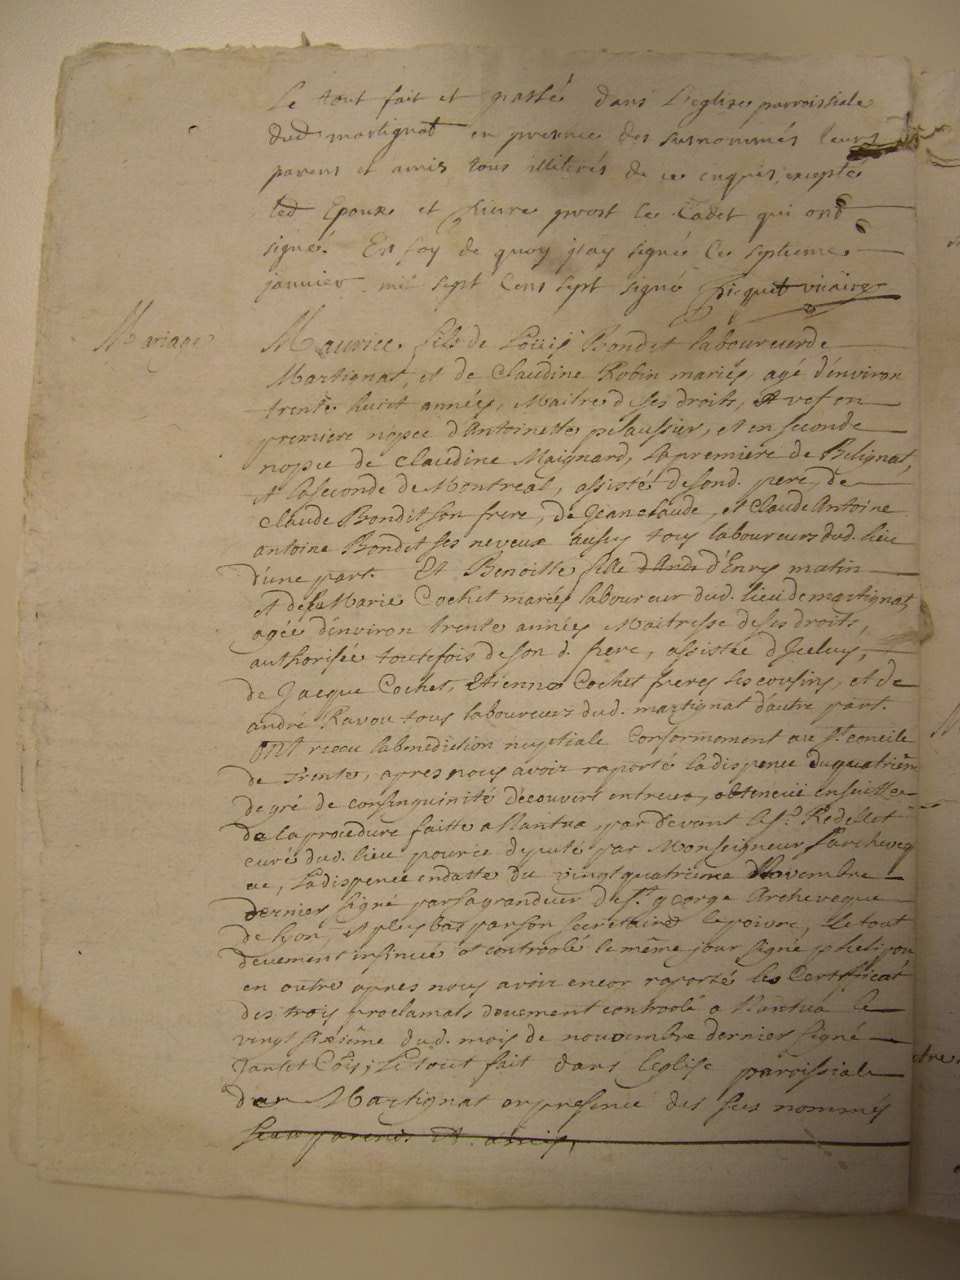 Le tout fait et passé dans Leglise parroissiale
dud martignat en presence des surnommés leurs
parens et amis tous illitirés de ce enquis, excepte
led Epoux et Pierre provst le Cadet qui ont
signé. En foy de quoy j'ay signé Ce septieme
janvier mil sept Cens sept signé Picquet vicaire
Mariage
Maurice fils de Loüis Bondet laboureur de
Martignat, et de Claudine Robin mariés, agé d'environ
trente huict années, Maitre d ses droits, et vef en
premiere nopce d'Antoinette pelaussier, et en seconde
nopce de Claudine Maignard, la premiere de Belignat,
et la seconde de Montreal, assisté de sond. pere, de
Claude Bondit son frere, de Jean Claude, et Claude Antoine
antoine Bondet ses neveux aussy tous laboureurs dud. lieu
d'une part. Et Benoitte fille d'Andr d'Enry matin
et de la Marie Cochet mariés laboureur dud. lieu de martignat,
agée d'environ trente années Maitresse de ses droits,
authorisée toutefois de son d. pere, assistée d'Iceluy,
de Jacque Cochet, Etienne Cochet freres ses cousins, et de
andré Ravou tous laboureurs dud. martignat d'autre part.
Ont receu la benediction nuptiale Conformement au St. concile
de Trente, apres nous avoir raporté la dispence du quatriême
degré de consinquinité découvert entreux, obtenuë ensuitte
de la procedure faitte a Nantua, par devant le Sr. Redellet
curé dud. lieu pour ce deputé par Monseigneur l'archeveq
ue, la dispence en datte du vingt quatriême Novembre
dernier signé par sa grandeur de St. george Archeveque
de Lyon, et plus bas par son secretaire le poivre, Le tout
deuement insinué et contróolé le même jour signé phelipou
en outre apres nous avoir encor raporté les Certificat
des trois proclamats deuement controolé a Nantua le
vingt sixiême dud. mois de novembre dernier signé
Le tout fait dans Leglise parroissiale
de Martignat en presence des sus nommés
leurs parents et amis,